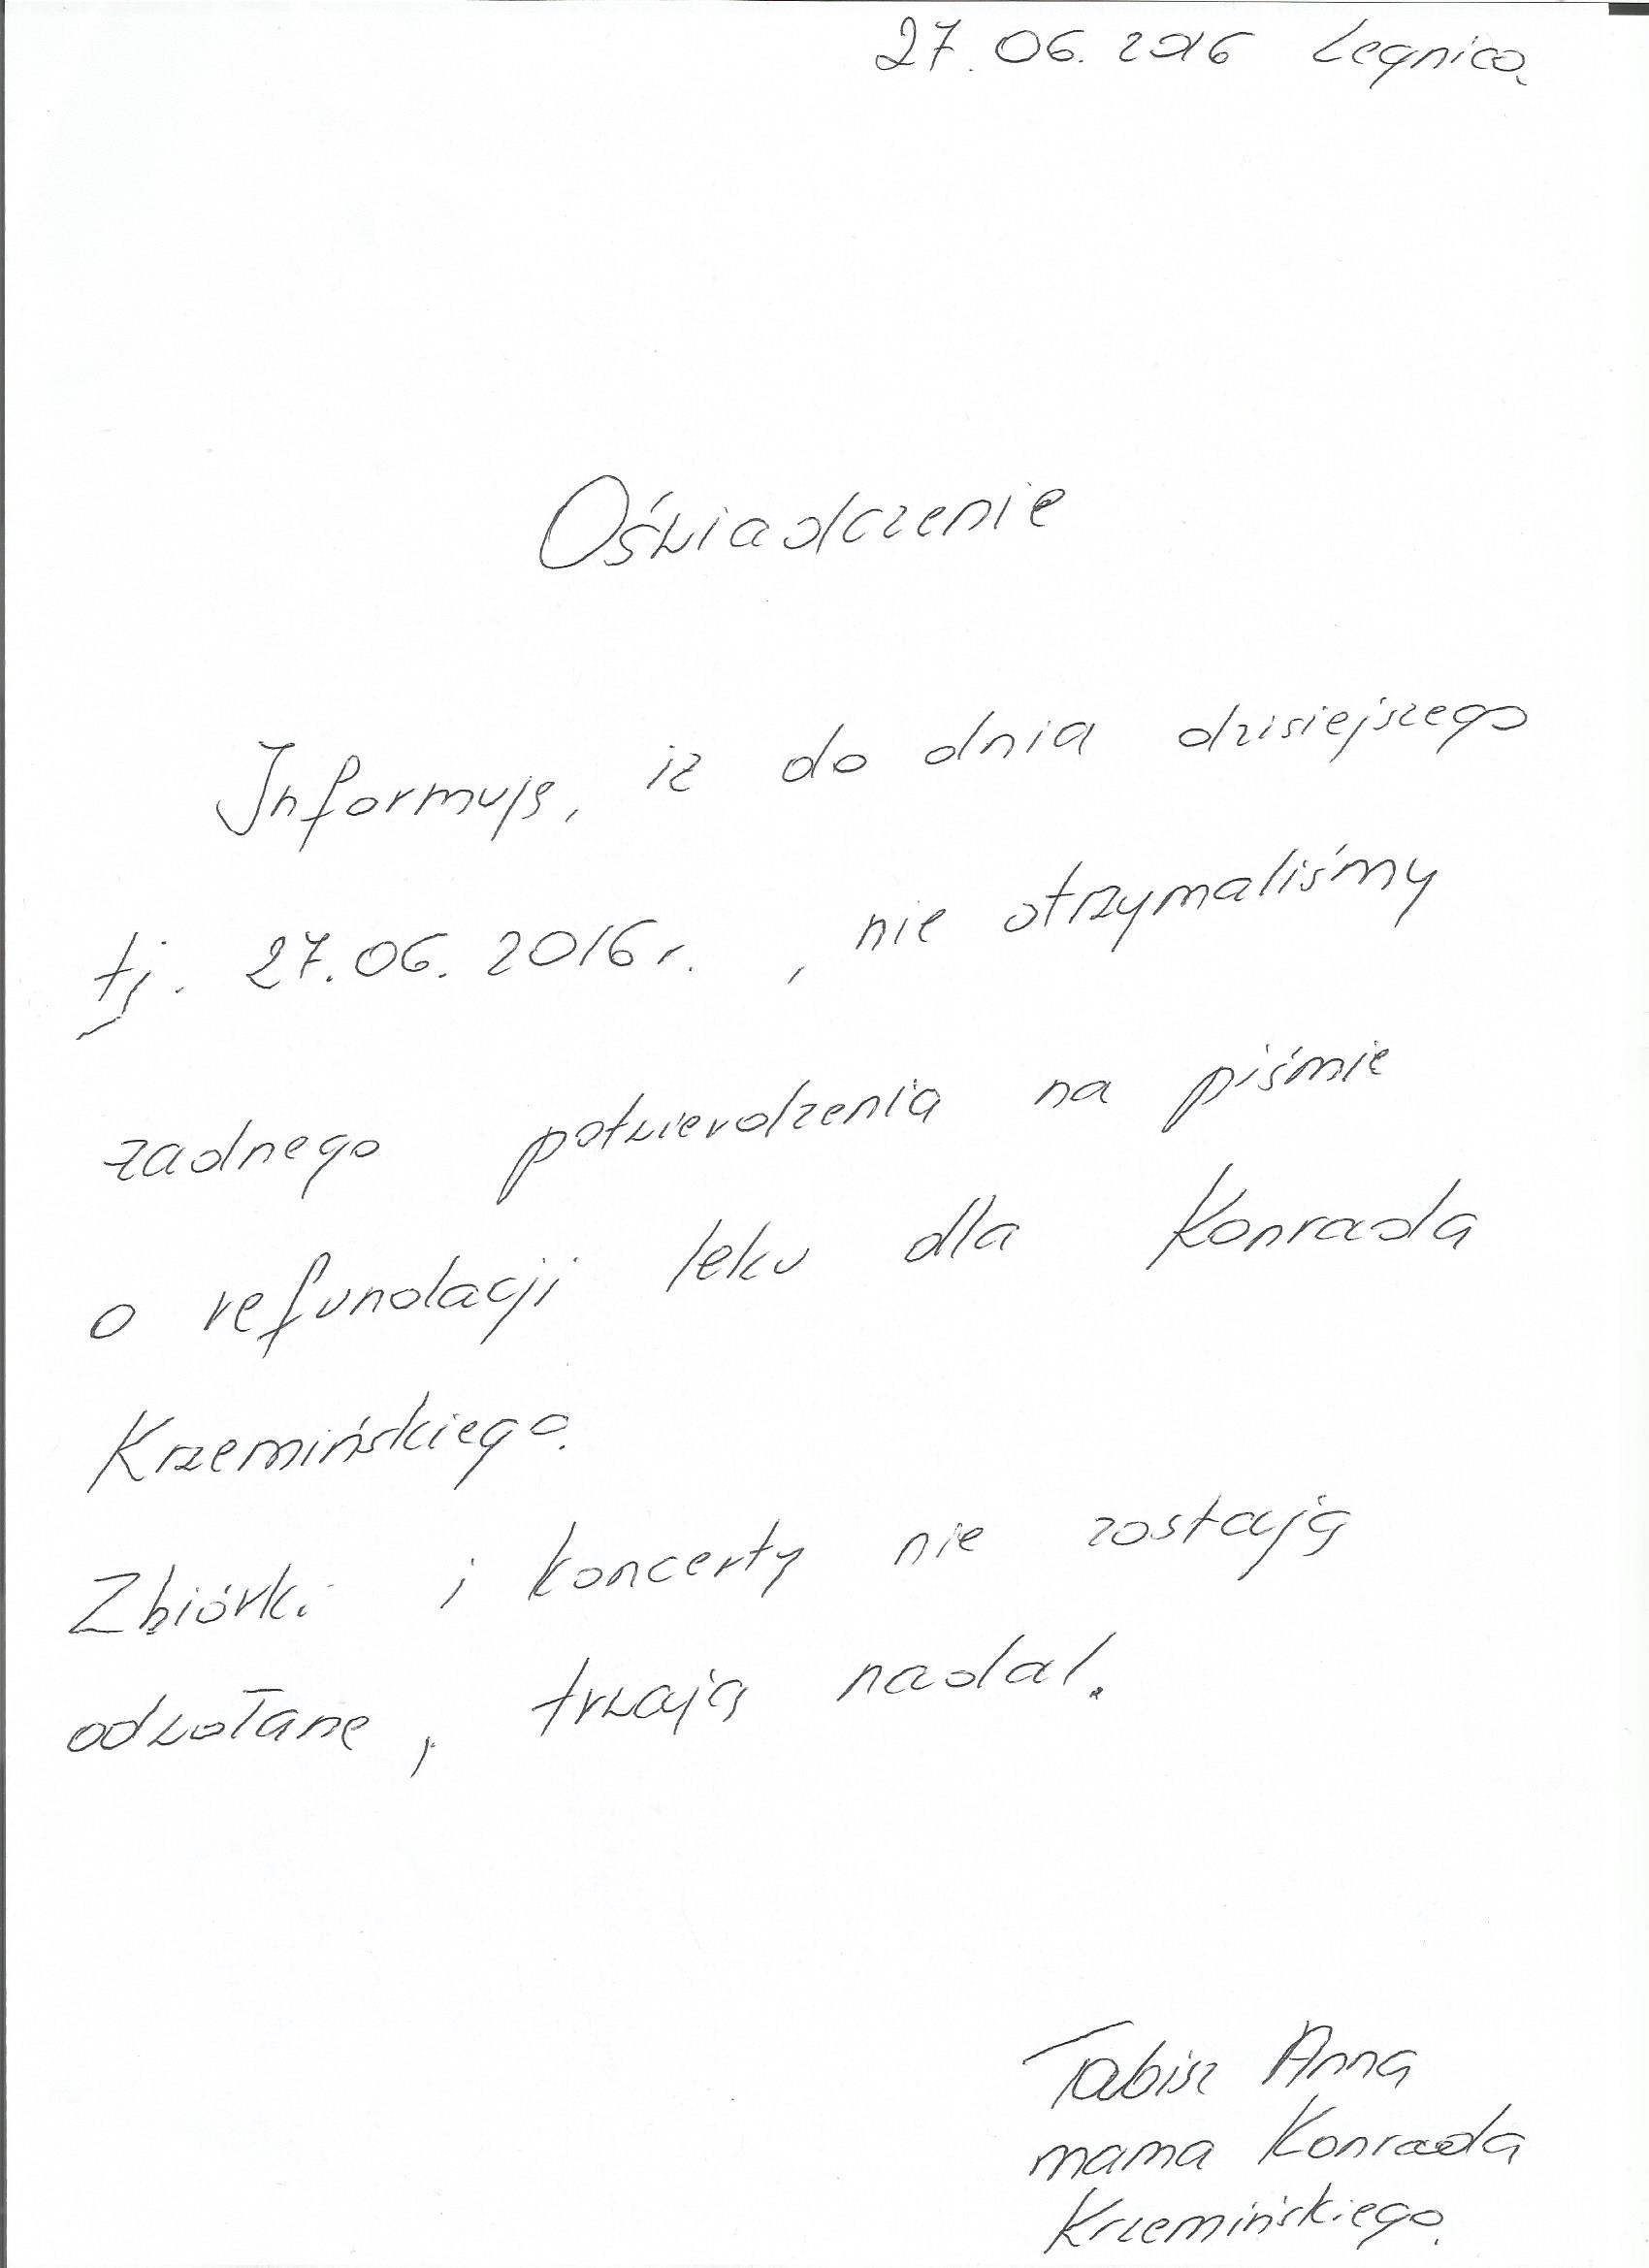 27.06.2016 Legnica
Oświadczenie
Informuję, iż do dnia dzisiejszego
tj. 27.06.2016r. , nie otrzymaliśmy
żadnego potwierdzenia na piśmie
o refundacji leku dla Konrada
Krzemińskiego.
Zbiórki i koncerty nie zostają
odwołane, trwają nadal.
Tabisz Anna
mama Konrada
Krzemińskiego.